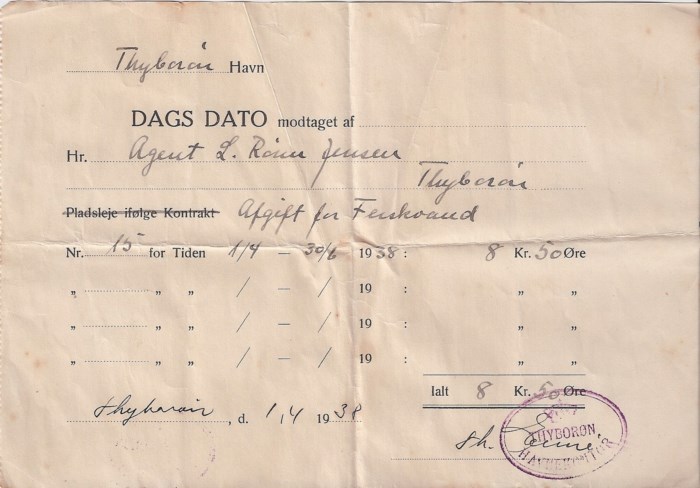 Thyborøn Havn
DAGS DATO modtaget af
Hr. Agent L. Rønn Jensen
Thyborøn
Pladsleje ifølge Kontrakt Afgift for Ferskvand
Nr. 15 for Tiden 1/4 — 30/6 1938 : 8 Kr. 50 Øre
„ „ „ / — / 19 : „ „
„ „ „ / — / 19 : „ „
„ „ „ / — / 19 : „ „
Ialt 8 Kr. 50 Øre
Thyborøn, d. 1/4 1938
Th.
THYBORØN
HAVNEKONTOR